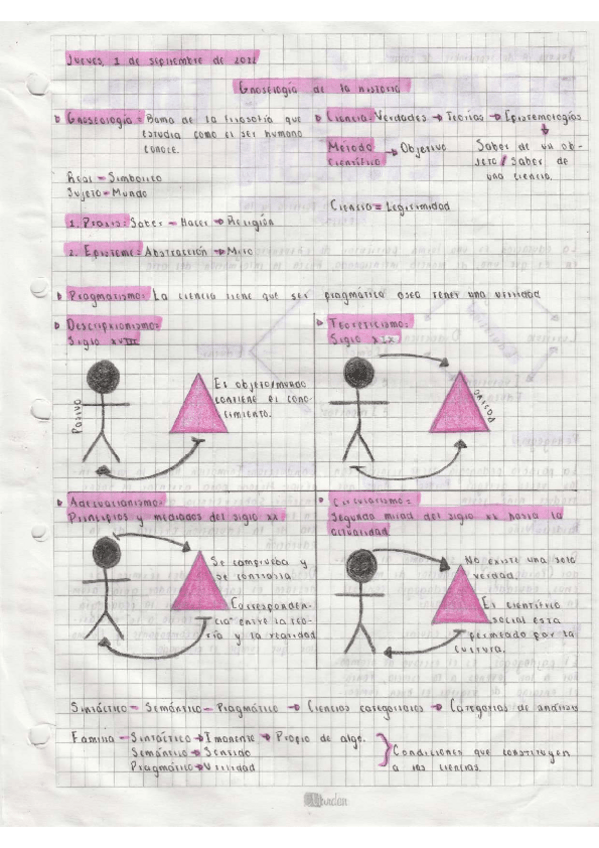 Jueves, 1 de septiembre de 2022
Gnoseología de la historia
Gnoseología = Rama de la filosofía que
estudia como el ser humano
conoce.
Real = Simbólico
Sujeto = Mundo
1. Praxis: Saber - Hacer → Religión
2. Episteme: Abstracción → Mito
Ciencia: Verdades → Teorías → Epistemologías
Método
científico → Objetivo
Saber de un ob-
jeto / Saber de
una ciencia.
Ciencia = Legitimidad
Pragmatismo: La ciencia tiene que ser pragmática osea tener una utilidad
Descripcionismo:
Siglo XVIII
Pasivo
Es objeto/mundo
contiene el cono-
cimiento.
Teoreticismo:
Siglo XIX
Pasivo
Adecuacionismo:
Principios y mediados del siglo XX
Se comprueba y
se contrasta.
"Corresponden-
cia" entre la teo-
ría y la realidad
Circularismo:
Segunda mitad del siglo XX hasta la
actualidad
No existe una sola
verdad.
Es científico
social esta
permeado por la
cultura.
Sintáctico - Semántico - Pragmático → Ciencias categoriales → Categorías de análisis
Familia - Sintáctico → Imanente → Propio de algo.
Semántico → Sentido
Pragmático → Utilidad
Condiciones que constituyen
a las ciencias.